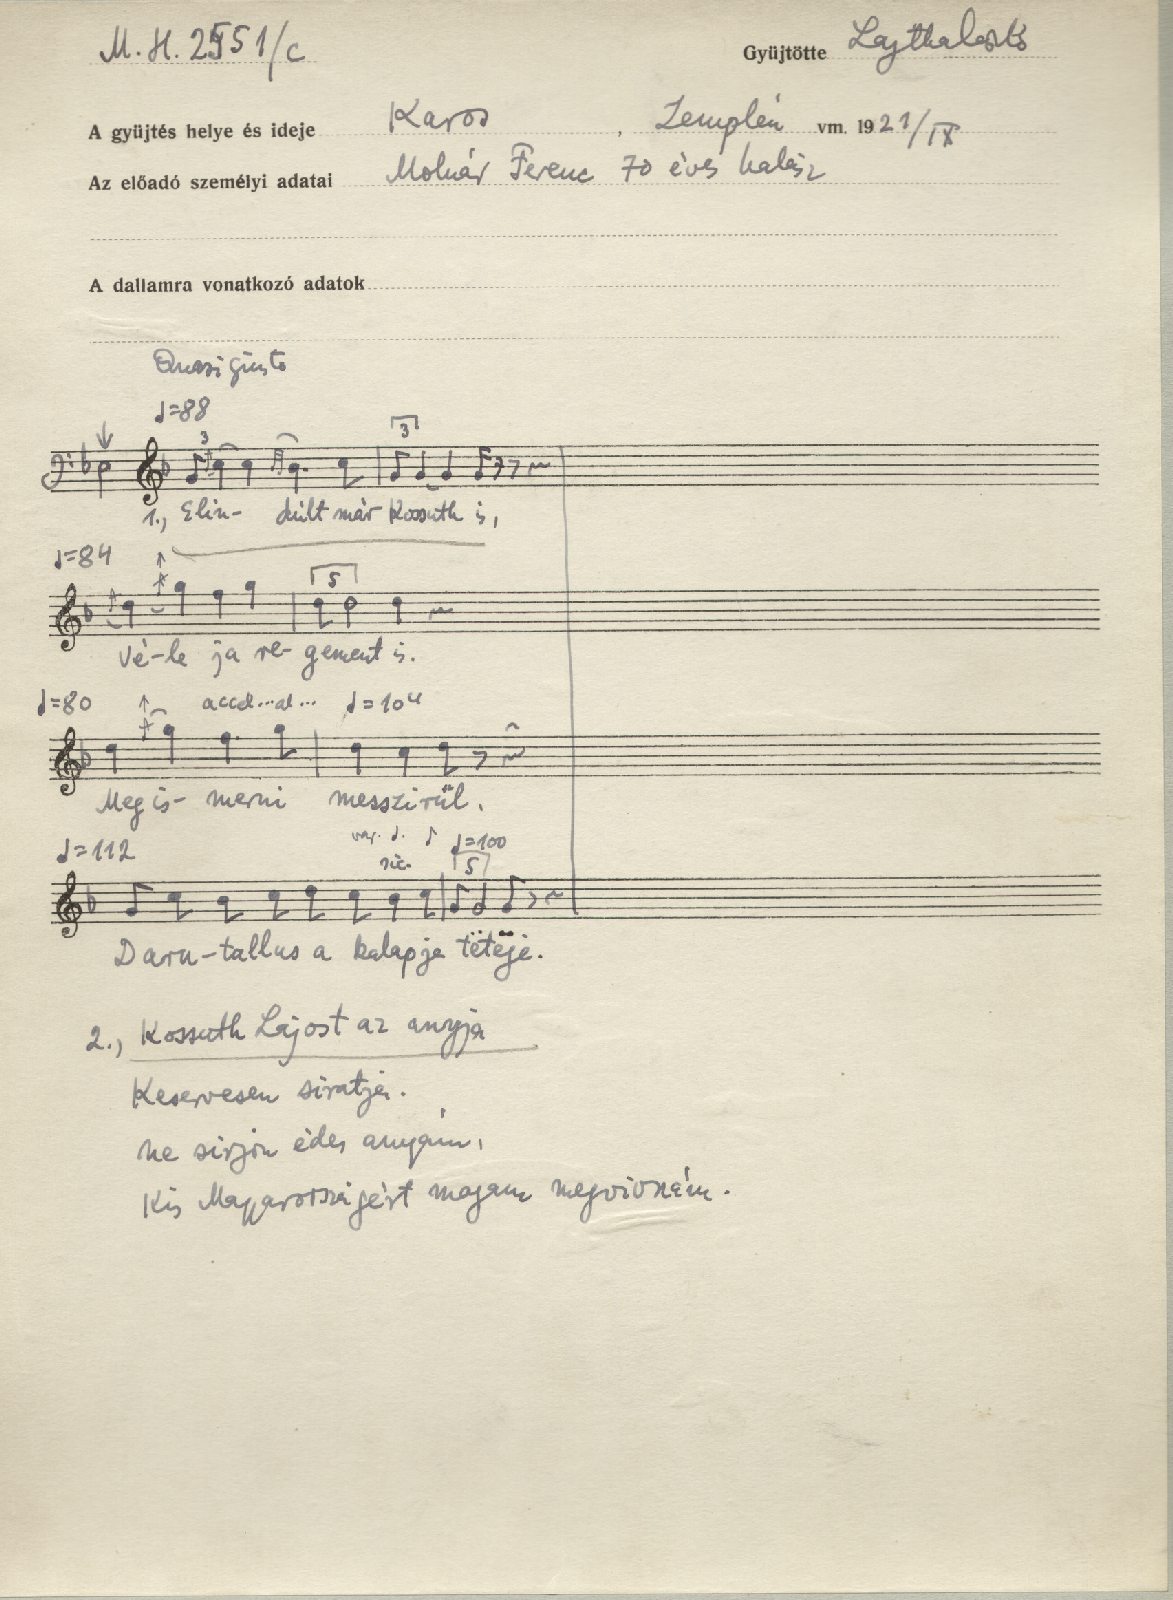 M. H. 2551/c
Gyüjtötte Lajtha László
A gyüjtés helye és ideje Karos, Zemplén vm. 1921/IX
Az előadó személyi adatai Molnár Ferenc 70 éves halász
A dallamra vonatkozó adatok
Quasi giusto
♩=88
3 3
1., Elin- dult már Kossuth is,
♩=84
5
Vé-le ja re- gement is.
♩=80 accel...al... ♩=104
Meg is- merni messzirül,
♩=112 var. ♩. ♪ ♩=100
sic. 5
Daru-tallus a kalapja tëtëje.
2., Kossuth Lajost az anyja
Keservesen siratja.
Ne sirjon édes anyám,
Kis Magyarországért magam megvivnám.